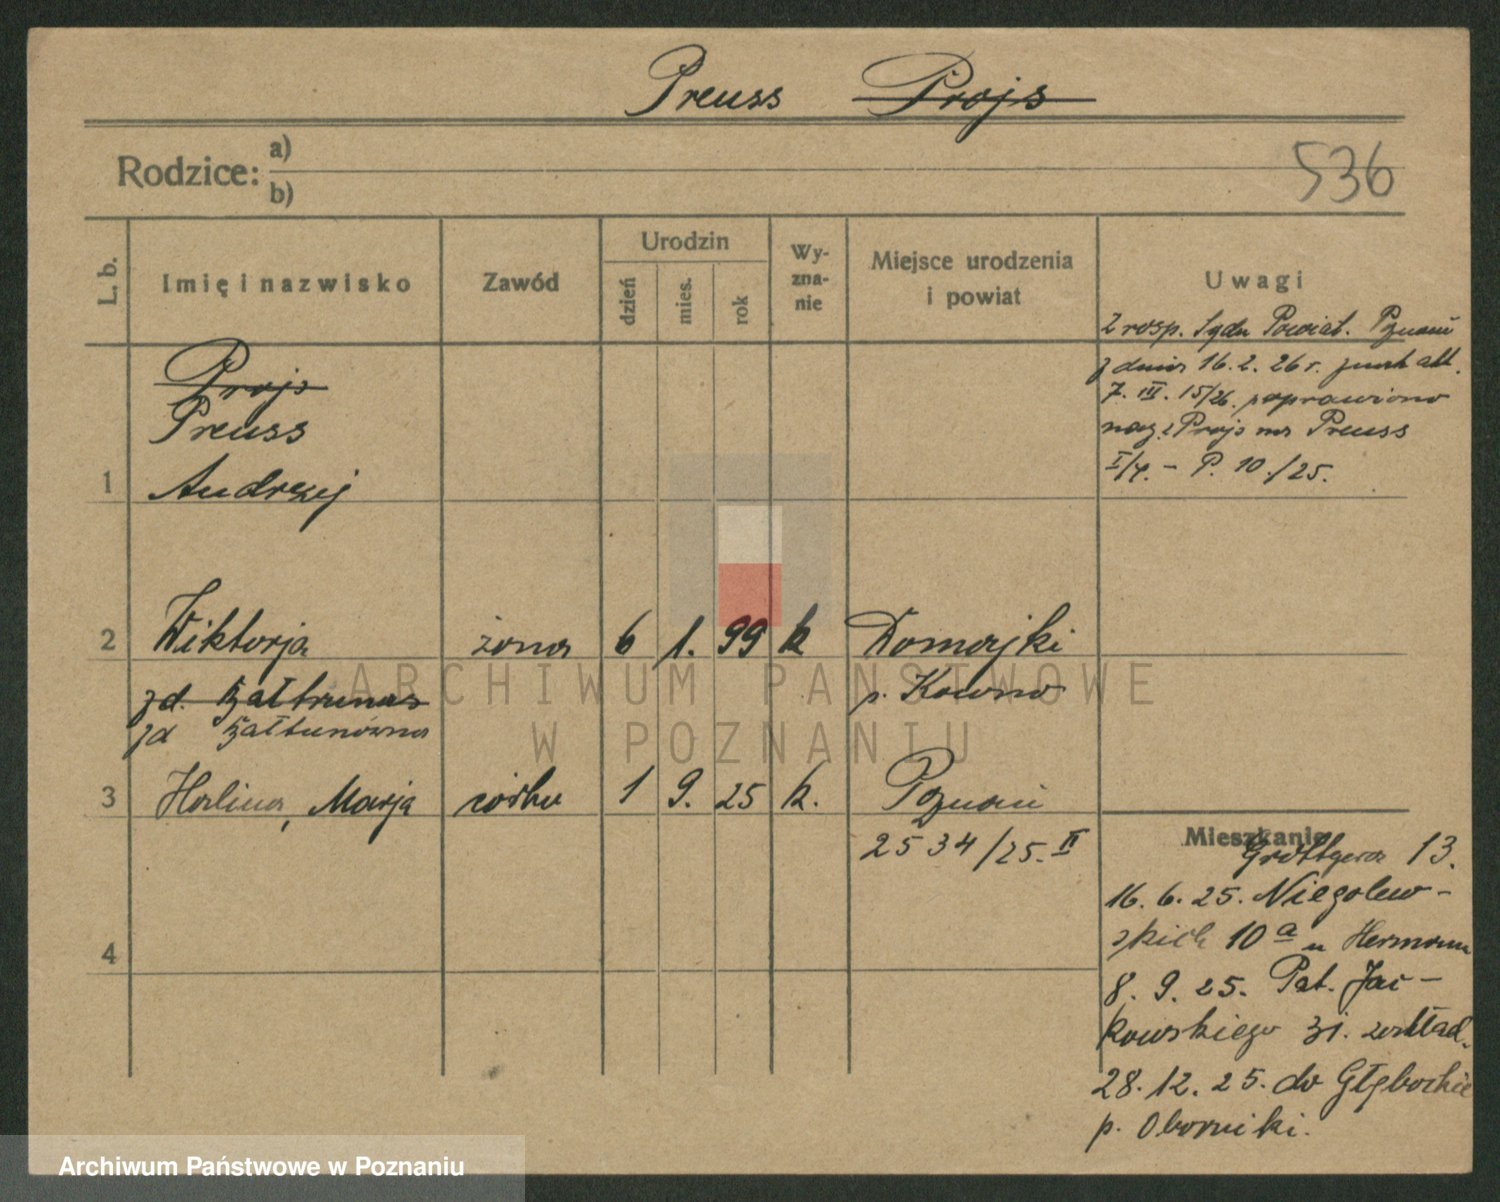 Preuss Projs
Rodzice: a)
b)
536
L. b.
Imię i nazwisko
Zawód
Urodzin
dzień
mies.
rok
Wy-
zna-
nie
Miejsce urodzenia
i powiat
Uwagi
Z rosp. Sądu Powiat. Poznań
z dnia 16. 2. 26 r. akt.
7. III. 15/26. poprawiono
naz. Projs na Preuss
I/4. - P. 10./25.
Projs
Preuss
1 Andrzej
2 Wiktorja żona 6 1. 99 k Domajki
zd. Żałtrunas p. Kowno
zd Żałtunówna
3 Halina, Marja córka 1 9. 25 k. Poznań
2534/25. II
4
Mieszkanie
Grottgera 13.
16. 6. 25. Niegolew-
skich 10 a u Hermann
8. 9. 25. Pat. Jac-
kowskiego 31.
28. 12. 25. do Głębockie
p. Oborniki.
ARCHIWUM PAŃSTWOWE
W POZNANIU
Archiwum Państwowe w Poznaniu